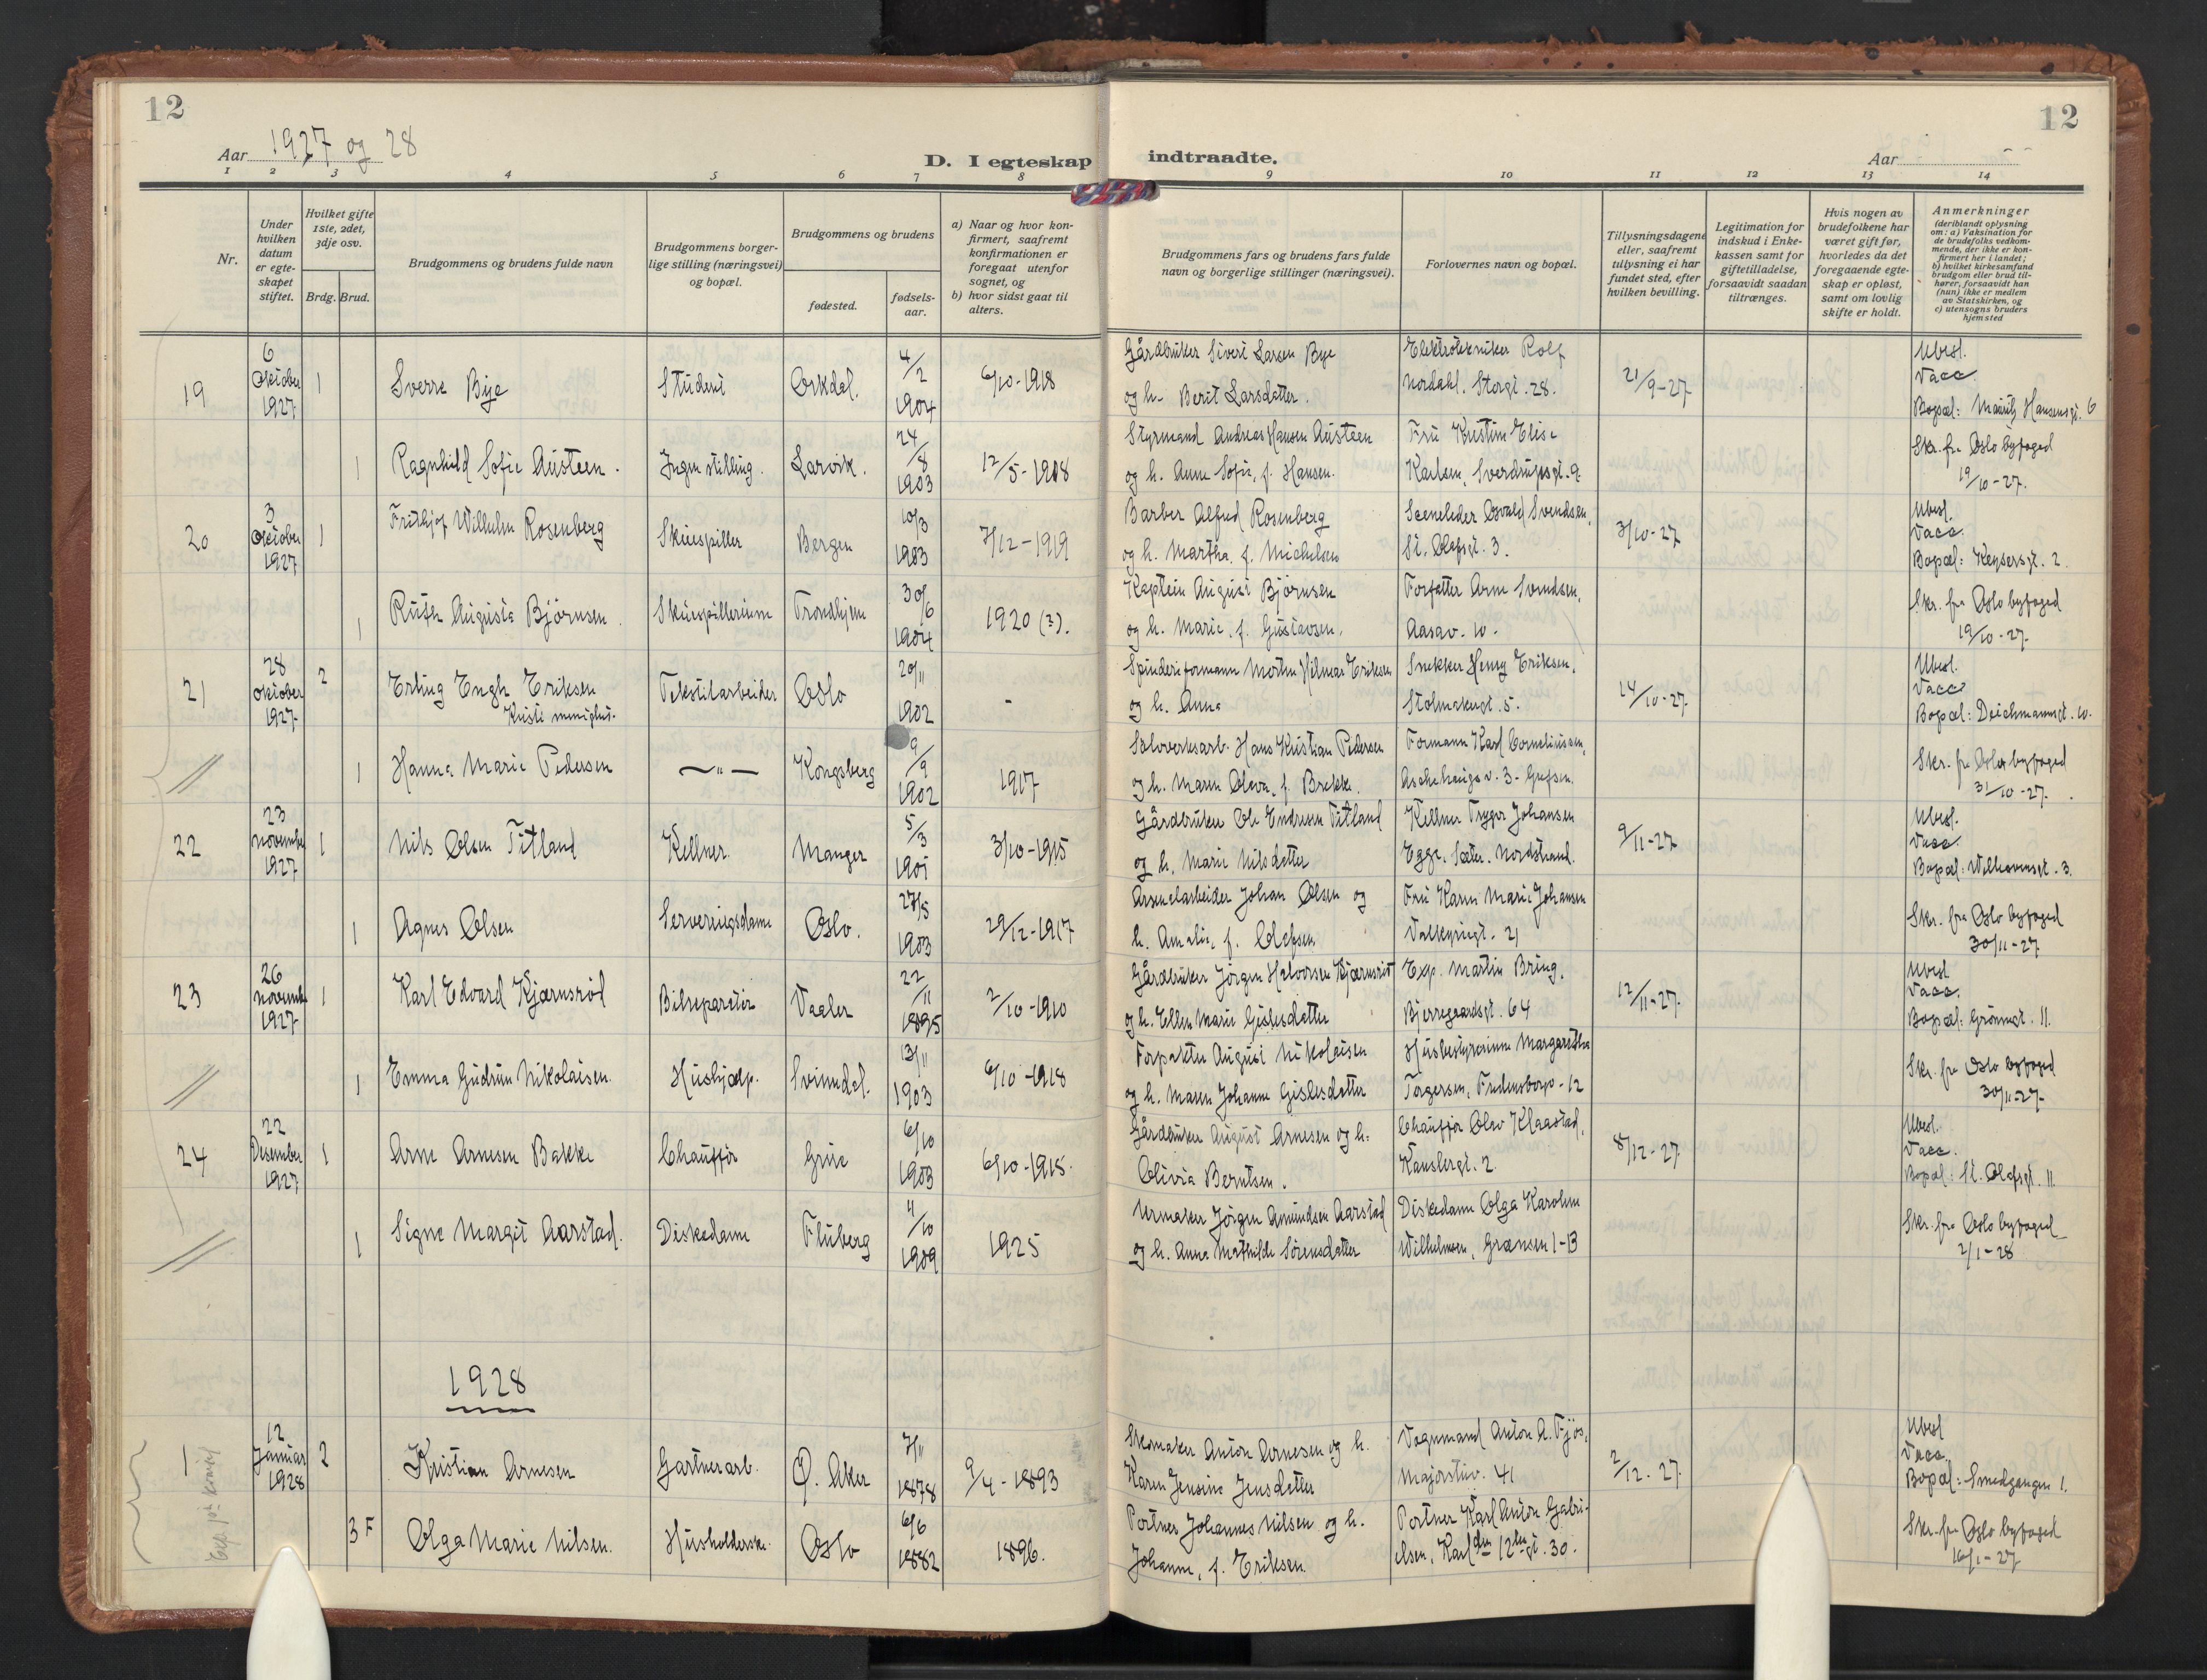 12
12
Aar 1927 og 28
D. I egteskap indtraadte.
Aar
1 2 3 4 5 6 7 8 9 10 11 12 13 14
Nr.
Under hvilken datum er egteskapet stiftet.
Hvilket gifte 1ste, 2det, 3dje osv.
Brdg. Brud.
Brudgommens og brudens fulde navn
Brudgommens borgerlige stilling (næringsvei) og bopæl.
Brudgommens og brudens
fødested.
fødselsaar.
a) Naar og hvor konfirmert, saafremt konfirmationen er foregaat utenfor sognet, og
b) hvor sidst gaat til alters.
Brudgommens fars og brudens fars fulde navn og borgerlige stillinger (næringsvei).
Forlovernes navn og bopæl.
Tillysningsdagene eller, saafremt tillysning ei har fundet sted, efter hvilken bevilling.
Legitimation for indskud i Enkekassen samt for giftetilladelse, forsaavidt saadan tiltrænges.
Hvis nogen av brudefolkene har været gift før, hvorledes da det foregaaende egteskap er opløst, samt om lovlig skifte er holdt.
Anmerkninger
(deriblandt oplysning om: a) Vaksination for de brudefolks vedkommende, der ikke er konfirmert her i landet; b) hvilket kirkesamfund brudgom eller brud tilhører, forsaavidt han (hun) ikke er medlem av Statskirken, og c) utensogns bruders hjemsted
19 6 Oktober 1927 1 Sverre Bye Student Orkdal. 4/2 1904 6/10-1918 Gårdbruker Sivert Larsen Bye og h. Berit Larsdatter. Elektrotekniker Rolf Nordahl. Storgt. 28. 21/9-27 Ubesl. Vacc. Bopæl: Mauritz Hansensgt. 6
1 Ragnhild Sofie Austeen. Ingen stilling. Larvik. 24/8 1903 12/5-1918 Styrmand Andreas Hansen Austeen og h. Anne Sofie, f. Hansen. Fru Kristine Elise Karlsen, Sverdrupsgt. 9 Skr. fra Oslo byfoged 19/10-27.
20 3 Oktober 1927 1 Frithjof Wilhelm Rosenberg Skuespiller Bergen 10/3 1903 7/12-1919 Barber Alfred Rosenberg og h. Martha f. Michelsen Sceneleder Osvald Svendsen, St. Olafsgt. 3. 3/10-27 Ubesl. Vacc. Bopæl: Keysersgt. 2.
1 Ruth Augusta Bjørnsen. Skuespillerinne Trondhjem 30/6 1904 1920 (?). Kaptein August Bjørnsen og h. Marie f. Gustavsen. Forfatter Arne Svendsen, Aasav. 10. Skr. fra Oslo byfoged 19/10-27.
21 28 Oktober 1927 2 Erling Engh Eriksen Kristi menighet. Tekstilarbeider Oslo 20/11 1902 - Spinderiformann Morten Hilmar Eriksen og h. Anna Snekker Henry Eriksen, Stolmakergt. 5. 14/10-27. Ubesl. Vacc. Bopæl: Deichmannsgt. 10.
1 Hanna Marie Pedersen —"— Kongsberg 9/9 1902 1917 Sølvverksarb. Hans Kristian Pedersen og h. Maren Oleva, f. Brekke. Formann Karl Corneliussen, Aschehaugsv. 3 - Grefsen. Skr. fra Oslo byfoged 31/10-27.
22 23 November 1927 1 Nils Olsen Titland Kellner. Manger 5/3 1901 3/10-1915 Gårdbruker Ole Endresen Titland og h. Marie Nilsdatter Kellner Trygve Johansen Egge. Sæter. Nordstrand. 9/11-27 Ubesl. Vacc. Bopæl: 3.
1 Agnes Olsen Serveringsdame Oslo. 27/5 1903 29/12-1917 Arsenalarbeider Johan Olsen og h. Amalie, f. Olefsen Fru Karen Marie Johansen Valkyriegt. 21 Skr. fra Oslo byfoged 30/11-27
23 26 November 1927 1 Karl Edvard Kjærnsrød Bilreparatør Vaaler 22/11 1895 2/10-1910 Gårdbruker Jørgen Halvorsen Kjærnsrød og h. Ellen Marie Gislesdatter Exp. Martin Bring, Bjerregaardsgt. 64 12/11-27. Ubesl. Vacc. Bopæl: Grønnegt. 11.
1 Emma Gudrun Nikolaisen. Hushjælp. Svinndal. 13/11 1903 6/10-1918 Forpakter August Nikolaisen og h. Maren Johanne Gislesdatter Husbestyrerinne Margarethe Torgersen, Fredensborgv - 12 Skr. fra Oslo byfoged 30/11-27.
24 22 Desember 1927 1 Arne Arnesen Bakke Chauffør Grue 6/10 1903 6/10-1918. Gårdbruker August Arnesen og h. Olivia Berntsen. Chauffør Olav Klaastad, Kanslergt. 2. 8/12-27. Ubesl. Vacc. Bopæl: St. Olafsgt. 11.
1 Signe Margit Aarstad. Diskedame Fluberg 11/10 1909 1925 Urmaker Jørgen Amundsen Aarstad og h. Anna Mathilde Sørensdatter Diskedame Olga Karoline Wilhelmsen, Grænsen 1-B Skr. fra Oslo byfoged 2/1-28
1928
1 12 Januar 1928 2 Kristian Arnesen Gartnerarb. Ø. Aker 7/11 1878 9/4-1893 Skomaker Anton Arnesen og h. Karen Jensine Jensdatter Vognmand Anton A. Fjøs, Majorstuv. 41 2/12-27. Ubesl Vacc. Bopæl: Smedgangen 1.
3 F Olga Marie Nilsen. Husholderske. Oslo 6/6 1882 1896. Portner Johannes Nilsen og h. Johanne, f. Eriksen. Portner Karl Anton Gabrielsen, Karl den 12tes gt. 30. Skr. fra Oslo byfoged 16/1-27